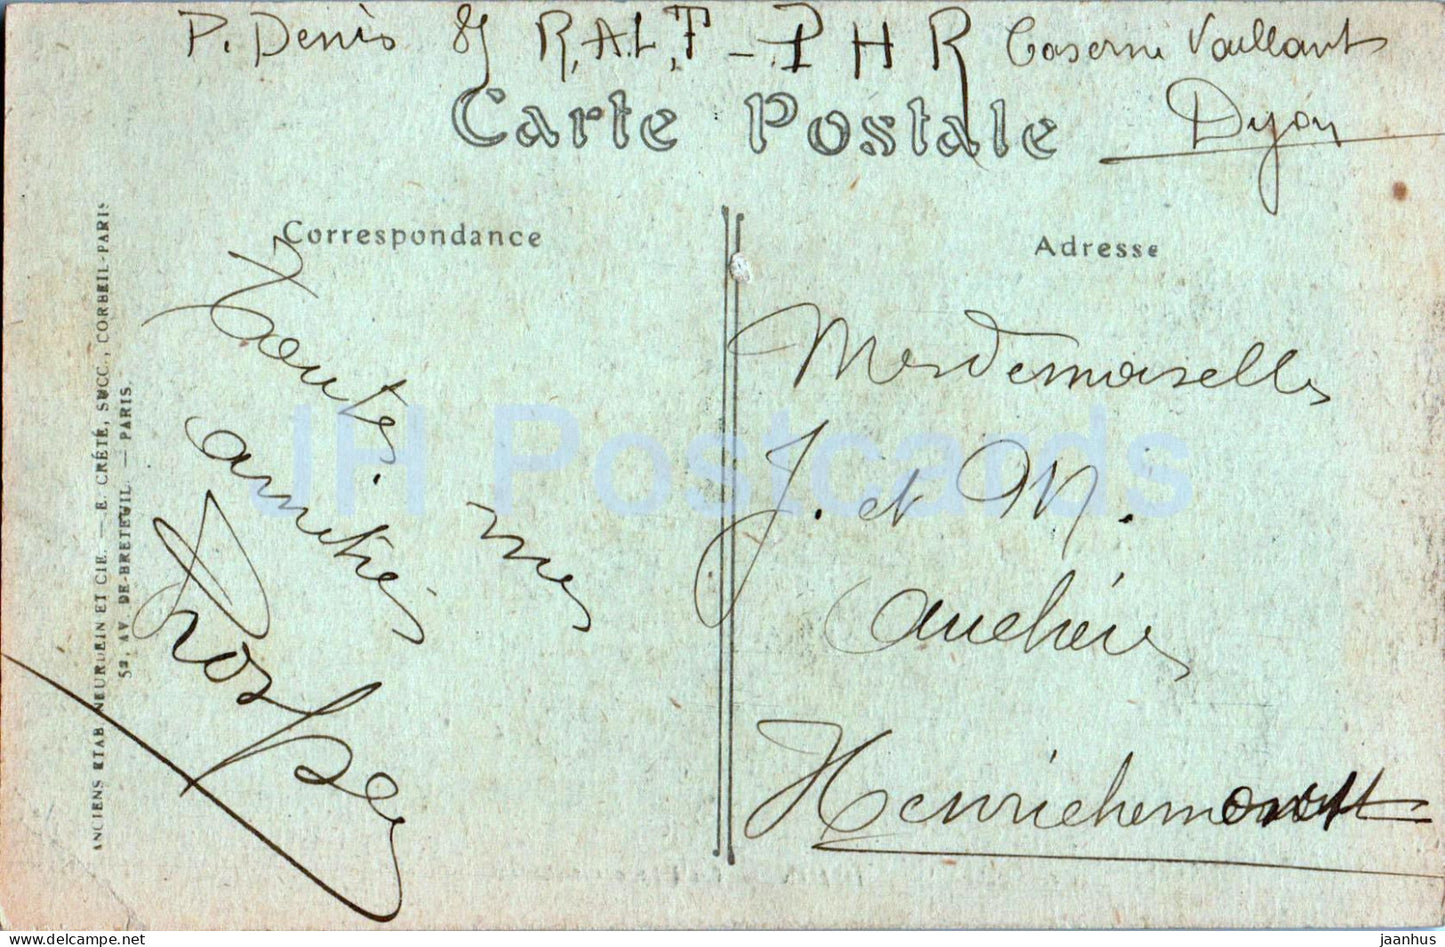 P. Denis 8 R.A.L.F - P H R Caserne Vaillant
Dijon
Carte Postale
Correspondance
Adresse
Toutes
mes
amitiés
Prosper
Mesdemoiselles
J. et M.
Henrichemont
ANCIENS ETAB. NEURDEIN ET CIE. — E. CRÉTÉ, SUCC., CORBEIL-PARIS
52, AV. DE-BRETEUIL. — PARIS.
JH Postcards
delcampe.net
jaanhus